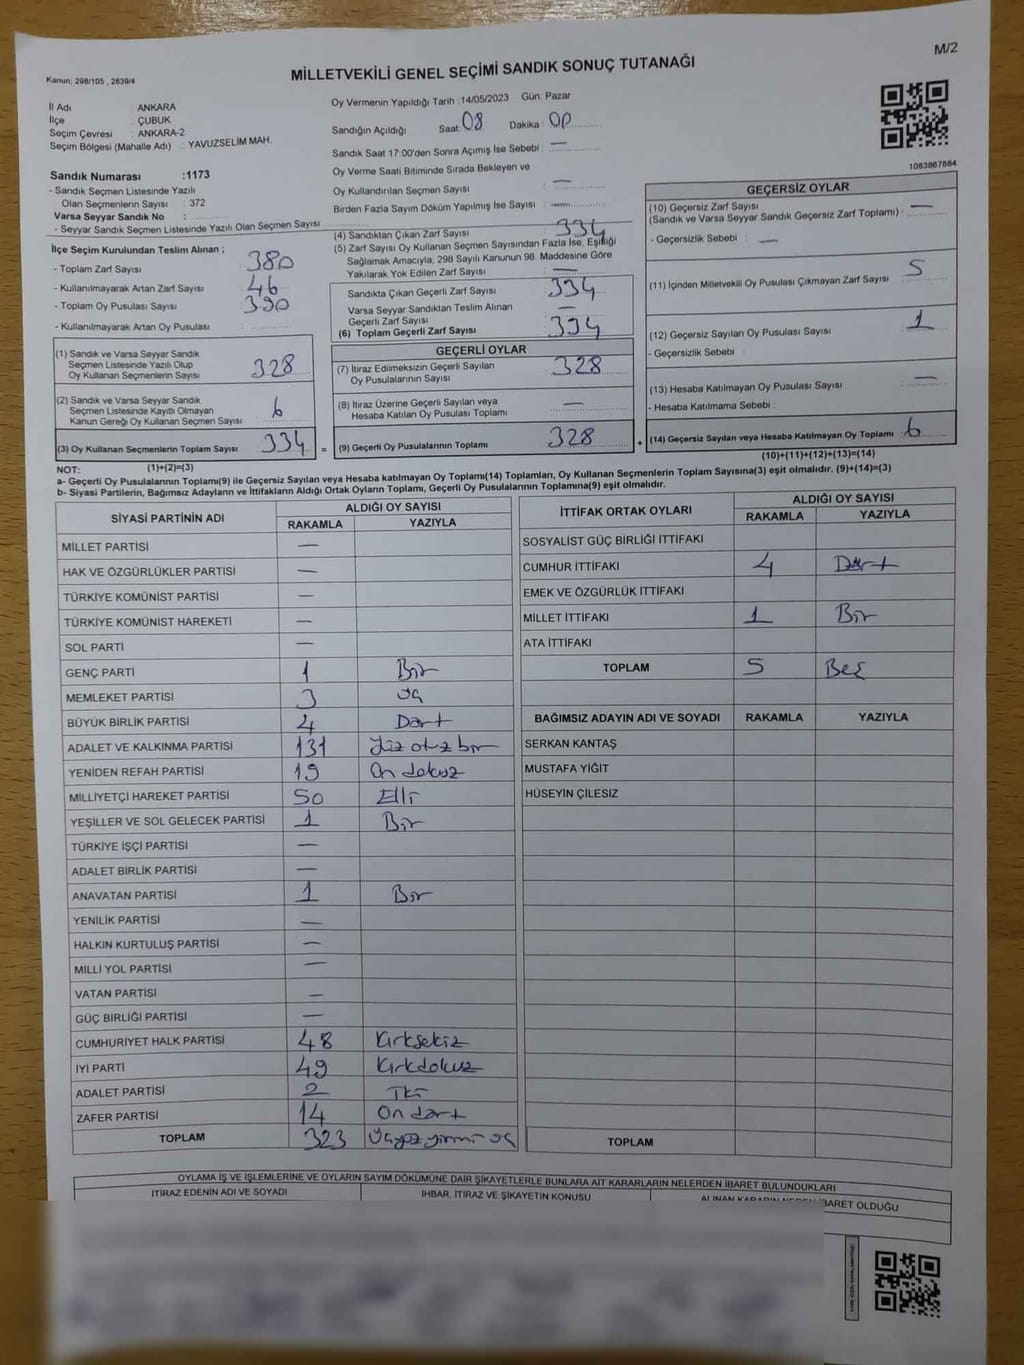 M/2
Kanun; 298/105 , 2839/4
MİLLETVEKİLİ GENEL SEÇİMİ SANDIK SONUÇ TUTANAĞI
İl Adı : ANKARA
İlçe : ÇUBUK
Seçim Çevresi : ANKARA-2
Seçim Bölgesi (Mahalle Adı) : YAVUZSELİM MAH.
Sandık Numarası :1173
- Sandık Seçmen Listesinde Yazılı
Olan Seçmenlerin Sayısı : 372
Varsa Seyyar Sandık No :
- Seyyar Sandık Seçmen Listesinde Yazılı Olan Seçmen Sayısı :
İlçe Seçim Kurulundan Teslim Alınan ;
- Toplam Zarf Sayısı : 380
- Kullanılmayarak Artan Zarf Sayısı : 46
- Toplam Oy Pusulası Sayısı : 390
- Kullanılmayarak Artan Oy Pusulası :
(1) Sandık ve Varsa Seyyar Sandık
Seçmen Listesinde Yazılı Olup
Oy Kullanan Seçmenlerin Sayısı : 328
(2) Sandık ve Varsa Seyyar Sandık
Seçmen Listesinde Kayıtlı Olmayan
Kanun Gereği Oy Kullanan Seçmen Sayısı : 6
(3) Oy Kullanan Seçmenlerin Toplam Sayısı : 334
(1)+(2)=(3)
Oy Vermenin Yapıldığı Tarih :14/05/2023 Gün: Pazar
Sandığın Açıldığı Saat: 08 Dakika : 00
Sandık Saat 17:00'den Sonra Açımış İse Sebebi : —
Oy Verme Saati Bitiminde Sırada Bekleyen ve
Oy Kullandırılan Seçmen Sayısı : —
Birden Fazla Sayım Döküm Yapılmış İse Sayısı : —
(4) Sandıktan Çıkan Zarf Sayısı : 334
(5) Zarf Sayısı Oy Kullanan Seçmen Sayısından Fazla İse, Eşitliği
Sağlamak Amacıyla; 298 Sayılı Kanunun 98. Maddesine Göre
Yakılarak Yok Edilen Zarf Sayısı : —
Sandıkta Çıkan Geçerli Zarf Sayısı : 334
Varsa Seyyar Sandıktan Teslim Alınan
Geçerli Zarf Sayısı : —
(6) Toplam Geçerli Zarf Sayısı : 334
GEÇERLİ OYLAR
(7) İtiraz Edilmeksizin Geçerli Sayılan
Oy Pusulalarının Sayısı : 328
(8) İtiraz Üzerine Geçerli Sayılan veya
Hesaba Katılan Oy Pusulası Toplamı : —
= (9) Geçerli Oy Pusulalarının Toplamı : 328
1083867884
GEÇERSİZ OYLAR
(10) Geçersiz Zarf Sayısı
(Sandık ve Varsa Seyyar Sandık Geçersiz Zarf Toplamı) : —
- Geçersizlik Sebebi : —
(11) İçinden Milletvekili Oy Pusulası Çıkmayan Zarf Sayısı : 5
(12) Geçersiz Sayılan Oy Pusulası Sayısı : 1
- Geçersizlik Sebebi :
(13) Hesaba Katılmayan Oy Pusulası Sayısı : —
- Hesaba Katılmama Sebebi :
+ (14) Geçersiz Sayılan veya Hesaba Katılmayan Oy Toplamı : 6
(10)+(11)+(12)+(13)=(14)
NOT:
a- Geçerli Oy Pusulalarının Toplamı(9) ile Geçersiz Sayılan veya Hesaba katılmayan Oy Toplamı(14) Toplamları, Oy Kullanan Seçmenlerin Toplam Sayısına(3) eşit olmalıdır. (9)+(14)=(3)
b- Siyasi Partilerin, Bağımsız Adayların ve İttifakların Aldığı Ortak Oyların Toplamı, Geçerli Oy Pusulalarının Toplamına(9) eşit olmalıdır.
SİYASİ PARTİNİN ADI ALDIĞI OY SAYISI
RAKAMLA YAZIYLA
MİLLET PARTİSİ —
HAK VE ÖZGÜRLÜKLER PARTİSİ —
TÜRKİYE KOMÜNİST PARTİSİ —
TÜRKİYE KOMÜNİST HAREKETİ —
SOL PARTİ —
GENÇ PARTİ 1 Bir
MEMLEKET PARTİSİ 3 üç
BÜYÜK BİRLİK PARTİSİ 4 Dört
ADALET VE KALKINMA PARTİSİ 131 Yüz otuz bir
YENİDEN REFAH PARTİSİ 19 On dokuz
MİLLİYETÇİ HAREKET PARTİSİ 50 Elli
YEŞİLLER VE SOL GELECEK PARTİSİ 1 Bir
TÜRKİYE İŞÇİ PARTİSİ —
ADALET BİRLİK PARTİSİ —
ANAVATAN PARTİSİ 1 Bir
YENİLİK PARTİSİ —
HALKIN KURTULUŞ PARTİSİ —
MİLLİ YOL PARTİSİ —
VATAN PARTİSİ —
GÜÇ BİRLİĞİ PARTİSİ —
CUMHURİYET HALK PARTİSİ 48 Kırksekiz
İYİ PARTİ 49 Kırkdokuz
ADALET PARTİSİ 2 İki
ZAFER PARTİSİ 14 On dört
TOPLAM 323 Üçyüz yirmi üç
İTTİFAK ORTAK OYLARI ALDIĞI OY SAYISI
RAKAMLA YAZIYLA
SOSYALİST GÜÇ BİRLİĞİ İTTİFAKI
CUMHUR İTTİFAKI 4 Dört
EMEK VE ÖZGÜRLÜK İTTİFAKI
MİLLET İTTİFAKI 1 Bir
ATA İTTİFAKI
TOPLAM 5 Beş
BAĞIMSIZ ADAYIN ADI VE SOYADI RAKAMLA YAZIYLA
SERKAN KANTAŞ
MUSTAFA YİĞİT
HÜSEYİN ÇİLESİZ
TOPLAM
OYLAMA İŞ VE İŞLEMLERİNE VE OYLARIN SAYIM DÖKÜMÜNE DAİR ŞİKAYETLERLE BUNLARA AİT KARARLARIN NELERDEN İBARET BULUNDUKLARI
İTİRAZ EDENİN ADI VE SOYADI İHBAR, İTİRAZ VE ŞİKAYETİN KONUSU ALINAN KARARIN NEDEN İBARET OLDUĞU